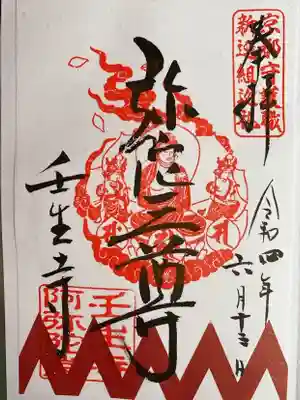 奉拝
京都守護職
新選組巡礼
令和四年
六月十三日
弥陀三尊
壬生寺
壬生寺
阿弥陀堂